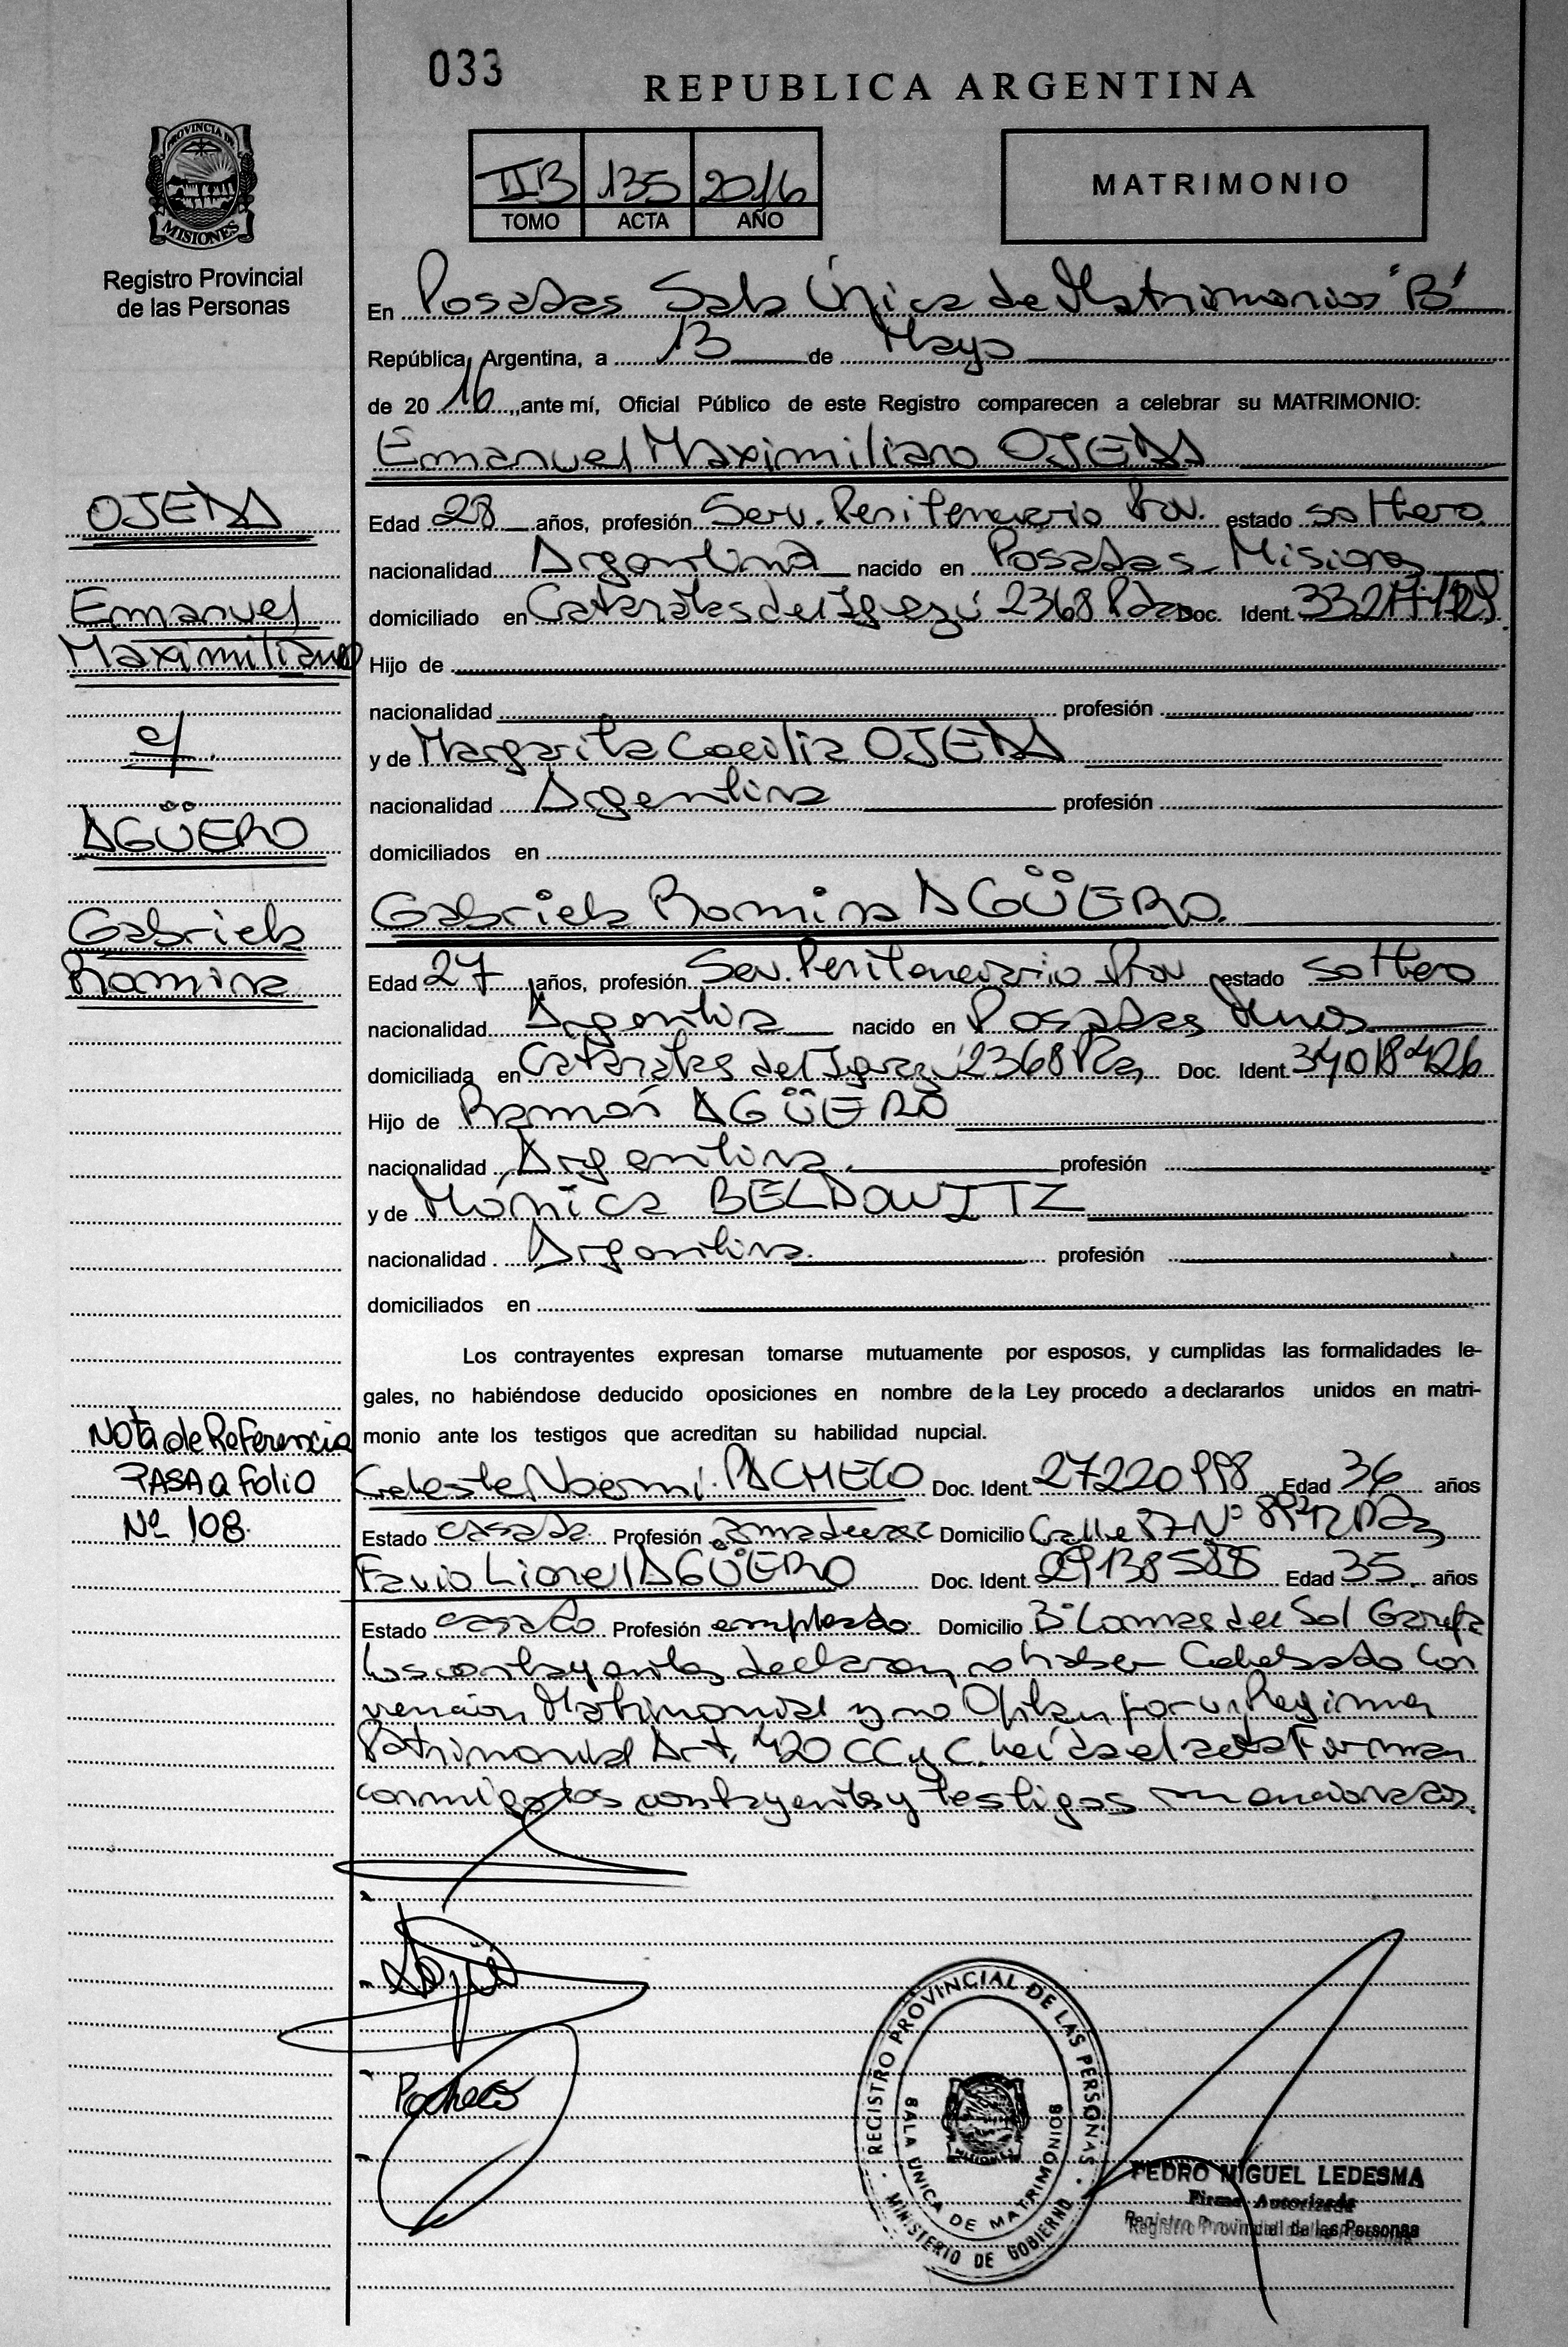 033
REPUBLICA ARGENTINA
PROVINCIA DE
MISIONES
Registro Provincial
de las Personas
IIB 135 2016
TOMO ACTA AÑO
MATRIMONIO
En Posadas Sala Única de Matrimonios "B"
República Argentina, a 13 de Mayo
de 20 16, ante mí, Oficial Público de este Registro comparecen a celebrar su MATRIMONIO:
Emanuel Maximiliano OJEDA
OJEDA
Emanuel
Maximiliano
c/
AGÜERO
Gabriela
Romina
Edad 28 años, profesión Serv. Penitenciario Prov. estado soltero
nacionalidad Argentina nacido en Posadas Misiones
domiciliado en Cataratas del Iguazú 2368 Pdas Doc. Ident.
Hijo de
nacionalidad profesión
y de Margarita Cecilia OJEDA
nacionalidad Argentina profesión
domiciliados en
Gabriela Romina AGÜERO
Edad 27 años, profesión Serv. Penitenciario Prov estado soltero
nacionalidad Argentina nacido en Posadas Mnes
domiciliada en Cataratas del Iguazú 2368 Doc. Ident. 34018426
Hijo de Ramón AGÜERO
nacionalidad Argentina profesión
y de Mónica BELDOWITZ
nacionalidad Argentina profesión
domiciliados en
Los contrayentes expresan tomarse mutuamente por esposos, y cumplidas las formalidades le-
gales, no habiéndose deducido oposiciones en nombre de la Ley procedo a declararlos unidos en matri-
monio ante los testigos que acreditan su habilidad nupcial.
Nota de Referencia
PASA a Folio
Nº 108.
Celeste Noemí PACHECO Doc. Ident. 27220998 Edad 36 años
Estado casada Profesión ama de casa Domicilio Calle Nº
Favio Lionel AGÜERO Doc. Ident. Edad 35 años
Estado casado Profesión empleado Domicilio Bº Lomas del Sol Garupá
Los contrayentes declaran no haber Celebrado Con
vención Matrimonial y no Optan por un Regimen
Patrimonial Art. 420 CC y C. Leída el acta Firman
conmigo los contrayentes y testigos mencionados.
Pacheco
REGISTRO PROVINCIAL DE LAS PERSONAS
SALA UNICA DE MATRIMONIOS
MISIONES
MINISTERIO DE GOBIERNO
PEDRO MIGUEL LEDESMA
Firma Autorizada
Registro Provincial de las Personas